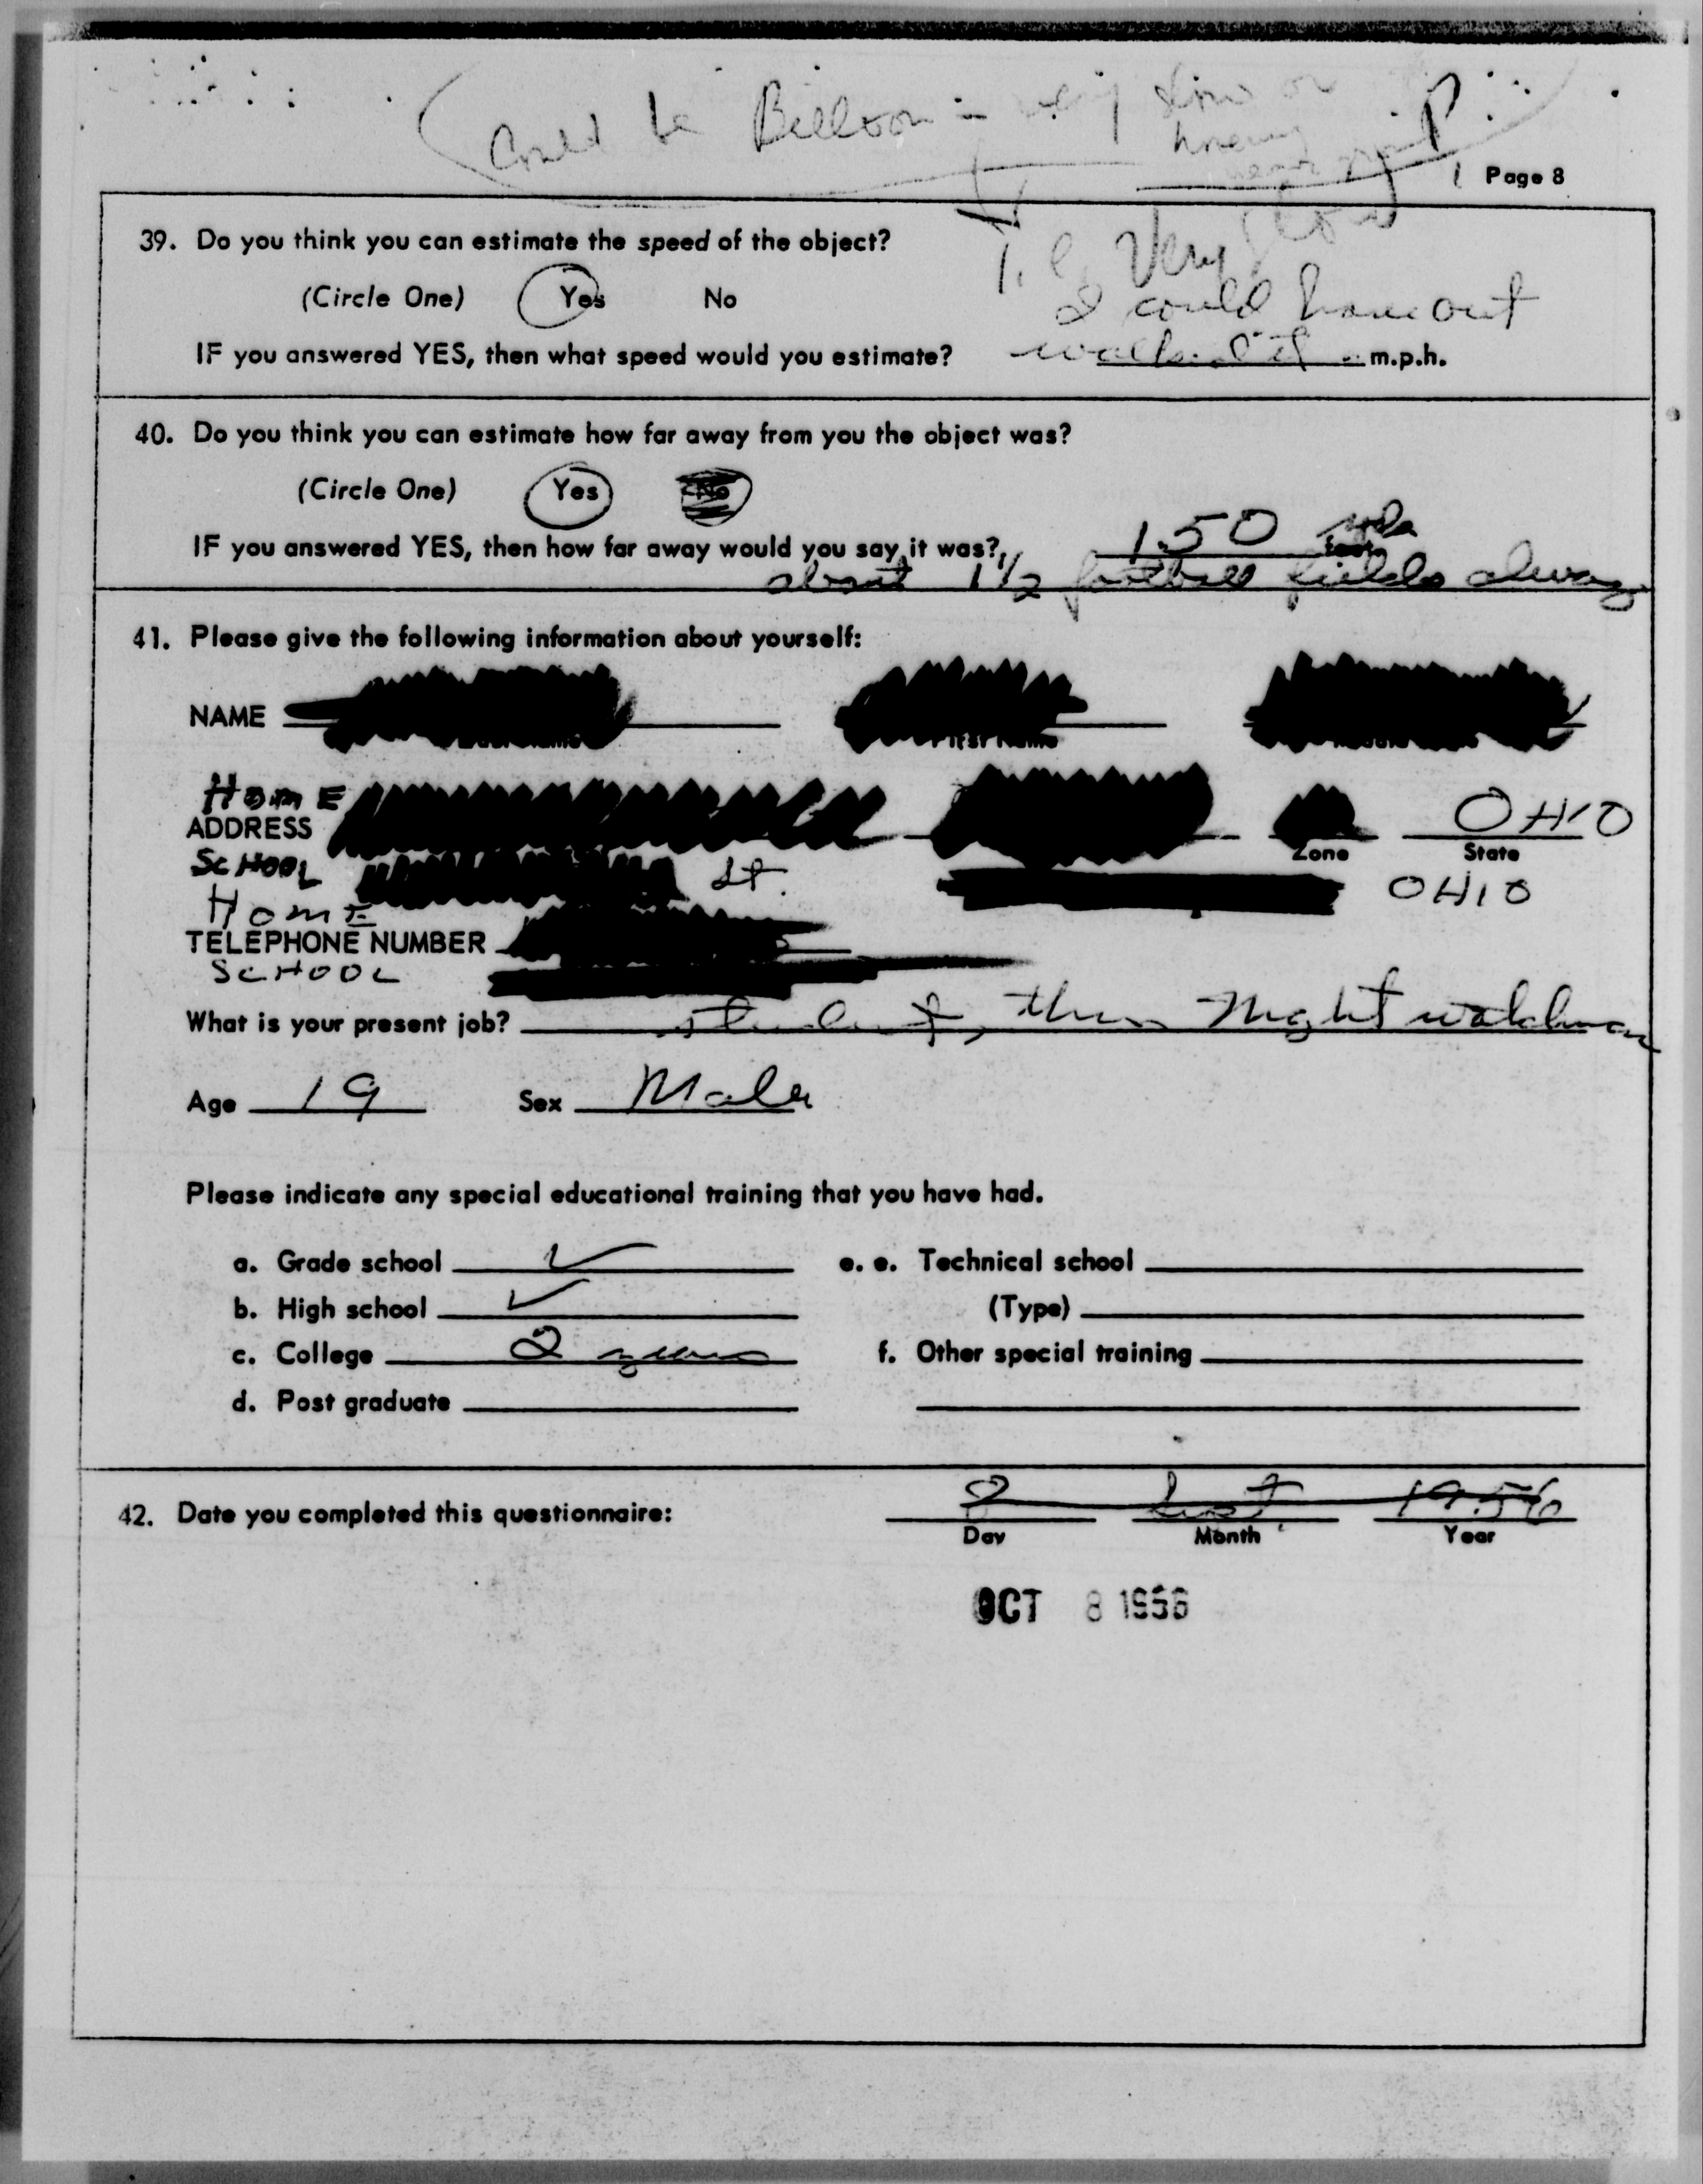 Could be Balloon - very slow or
Page 8
39. Do you think you can estimate the speed of the object?
Very slow
(Circle One) Yes No
I could have out
IF you answered YES, then what speed would you estimate? walked it m.p.h.
40. Do you think you can estimate how far away from you the object was?
(Circle One) Yes No
IF you answered YES, then how far away would you say it was? 150 yds feet.
about 1 1/2 football fields away
41. Please give the following information about yourself:
NAME
First Name
HOME
ADDRESS OHIO
Zone State
SCHOOL St. OHIO
HOME
TELEPHONE NUMBER
SCHOOL
What is your present job? student, then Night watchman
Age 19 Sex Male
Please indicate any special educational training that you have had.
a. Grade school ✓ e. e. Technical school
b. High school ✓ (Type)
c. College 2 years f. Other special training
d. Post graduate
42. Date you completed this questionnaire: 8 1956
Day Month Year
OCT 8 1956